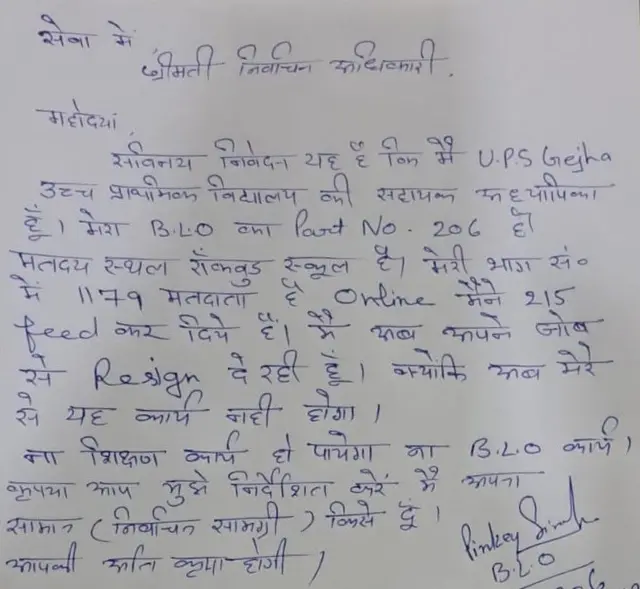 सेवा में
श्रीमती निर्वाचन अधिकारी,
महोदया,
सविनय निवेदन यह है कि मैं U.P.S Gejha
उच्च प्राथमिक विद्यालय की सहायक अध्यापिका
हूँ। मेरा B.L.O का Part No. 206 है
मतदय स्थल रॉकवुड स्कूल है। मेरी भाग सं०
में 1179 मतदाता है Online मैंने 215
feed कर दिये हैं। मैं अब अपने जोब
से Resign दे रही हूँ। क्योंकि अब मेरे
से यह कार्य नही होगा।
ना शिक्षण कार्य हो पायेगा ना B.L.O कार्य।
कृपया आप मुझे निर्देशित करें मैं अपना
सामान (निर्वाचन सामग्री) किसे दूँ।
आपकी अति कृपा होगी।
Pinkey Singh
B.L.O